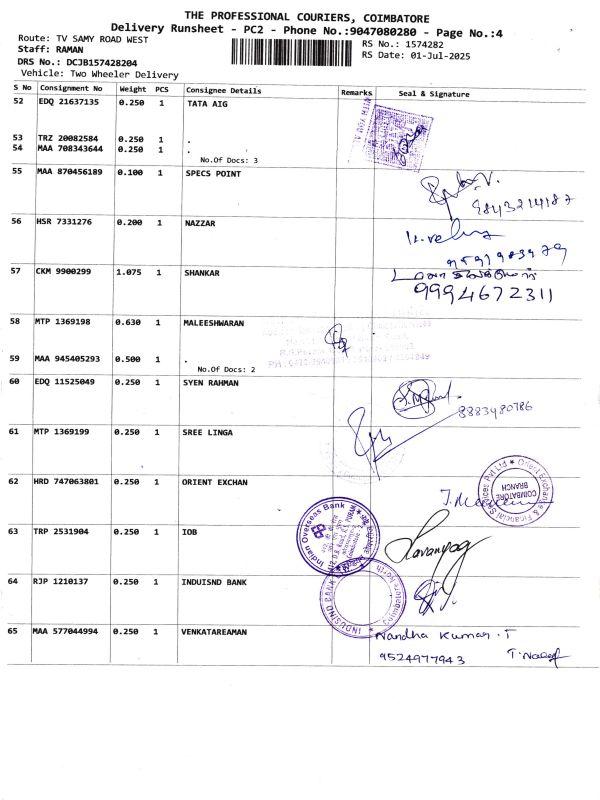 THE PROFESSIONAL COURIERS, COIMBATORE
Delivery Runsheet - PC2 - Phone No.:9047080280 - Page No.:4
Route: TV SAMY ROAD WEST
RS No.: 1574282
Staff: RAMAN
RS Date: 01-Jul-2025
DRS No.: DCJB157428204
Vehicle: Two Wheeler Delivery
S No Consignment No Weight PCS Consignee Details Remarks Seal & Signature
52 EDQ 21637135 0.250 1 TATA AIG
53 TRZ 20082584 0.250 1 .
54 MAA 708343644 0.250 1 .
No.Of Docs: 3
55 MAA 870456189 0.100 1 SPECS POINT
9843214187
56 HSR 7331276 0.200 1 NAZZAR
57 CKM 9900299 1.075 1 SHANKAR
9994672311
58 MTP 1369198 0.630 1 MALEESHWARAN
59 MAA 945405293 0.500 1 .
No.Of Docs: 2
60 EDQ 11525049 0.250 1 SYEN RAHMAN
8883480786
61 MTP 1369199 0.250 1 SREE LINGA
62 HRD 747063801 0.250 1 ORIENT EXCHAN
Orient Exchange & Financial Services Pvt Ltd
COIMBATORE
BRANCH
63 TRP 2531904 0.250 1 IOB
Indian Overseas Bank
Lavanya
64 RJP 1210137 0.250 1 INDUISND BANK
INDUSIND BANK
65 MAA 577044994 0.250 1 VENKATAREAMAN
Nandha Kumar. T
9524977943